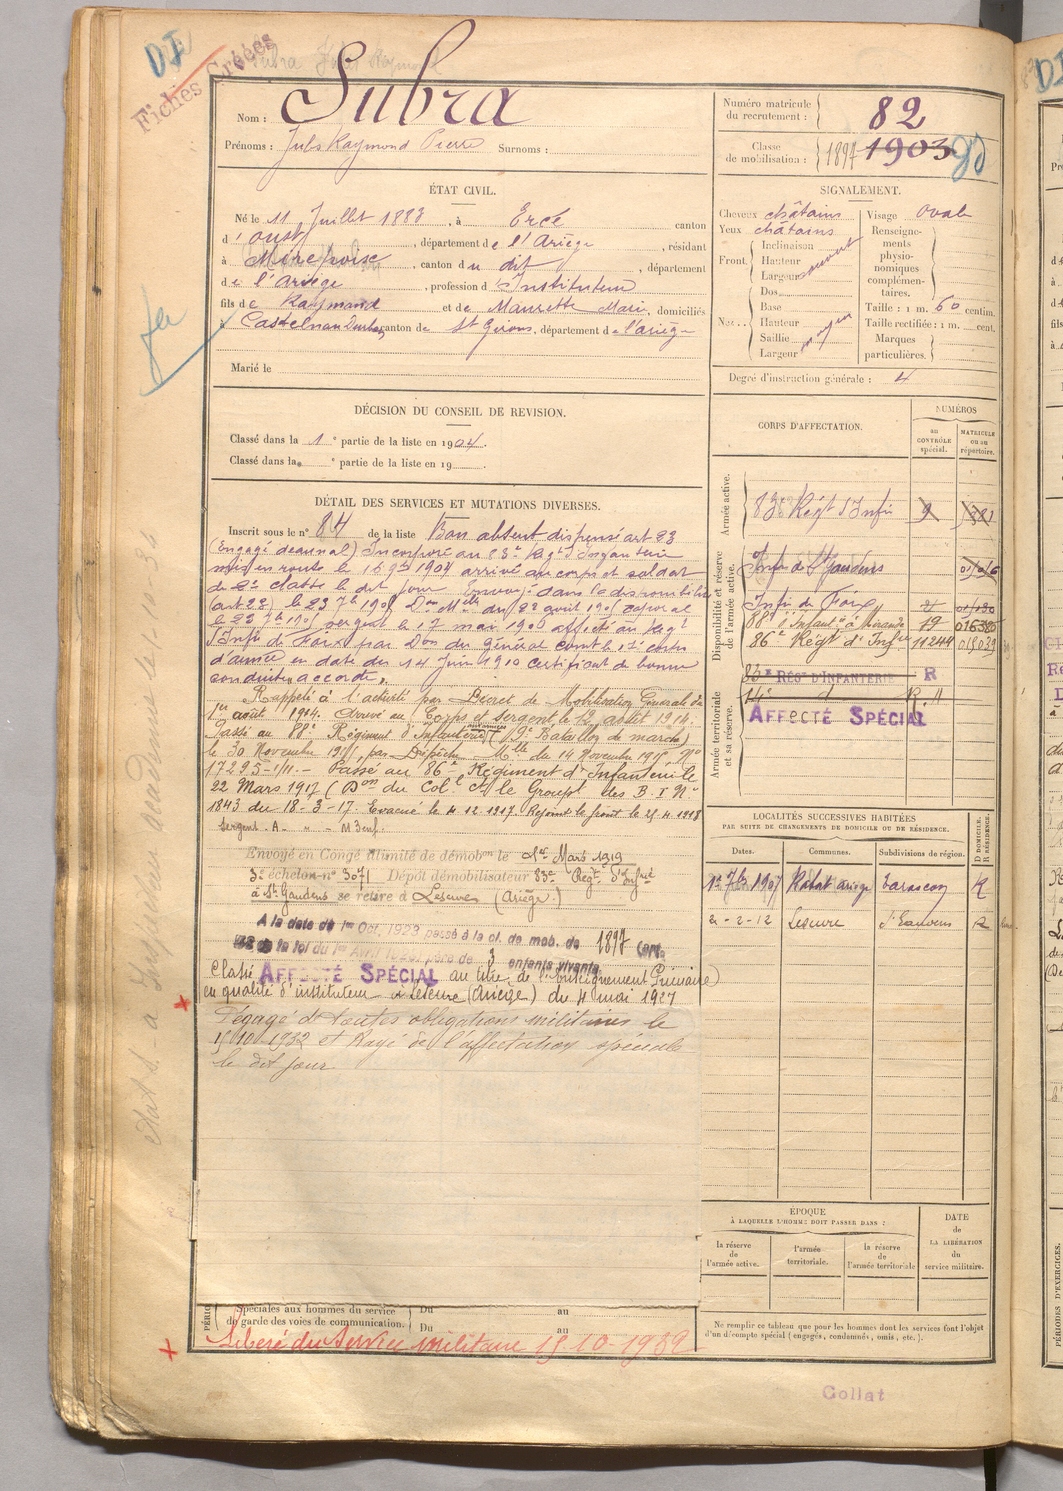 DI
Fiches Créées
Subra Jules Raymond
Nom : Subra
Prénoms : Jules Raymond Pierre Surnoms :
Numéro matricule du recrutement : 82
Classe de mobilisation : 1897 1903
ÉTAT CIVIL.
Né le 11 Juillet 1883, à Ercé canton
d'Oust, département de l'Ariège, résidant
à Mirepoix, canton du dit, département
de l'Ariège, profession d'Instituteur
fils de Raymond et de Maurette Marie, domiciliés
à Castelnau Durban canton de St Girons, département de l'Ariège
Marié le
SIGNALEMENT.
Cheveux châtains
Yeux châtains
Front. Inclinaison
Hauteur
Largeur
Nez. Dos
Base
Hauteur
Saillie
Largeur
Visage ovale
Renseignements physionomiques complémentaires.
Taille : 1 m. 60 centim.
Taille rectifiée : 1 m. cent.
Marques particulières.
Degré d'instruction générale : 4
DÉCISION DU CONSEIL DE REVISION.
Classé dans la 1e partie de la liste en 1904.
Classé dans la e partie de la liste en 19
DÉTAIL DES SERVICES ET MUTATIONS DIVERSES.
Inscrit sous le n° 84 de la liste Bon absent dispensé art 23
(Engagé décennal) Incorporé au 83e Régt d'Infanterie
mis en route le 16 9bre 1904 arrivé au corps et soldat
de 2e classe le dit jour Envoyé dans la disponibilité
(art 23) le 23 7bre 1905 Don Mlle du 22 août 1905 caporal
le 22 7bre 1905 sergent le 17 mai 1906 affecté au Régt
d'Infie de Foix par Don du Général comt le 17e corps
d'armée en date du 14 Juin 1910 certificat de bonne
conduite accordé.
Rappelé à l'activité par Décret de Mobilisation Générale du
1er août 1914. Arrivé au Corps et sergent le 12 août 1914.
Passé au 88e Régiment d'Infanterie (9e Bataillon de marche)
le 30 Novembre 1915, par Dépêche Mlle du 14 Novembre 1915 No
17295-1/11. - Passé au 86e Régiment d'Infanterie le
22 Mars 1917 (Don du Colel Ct le Groupt des B. I No
1843 du 18-3-17. Evacué le 4 12 1917 Rejoint le front le 25 4 1918
Envoyé en Congé illimité de démobon le 1er Mars 1919
3e échelon no 3071 Dépôt démobilisateur 83e Régt d'Infie
à St Gaudens se retire à Lescure (Ariège.)
A la date du 1er Oct. 1923 passé à la cl. de mob. de 1897
de la loi du 1er Avril 1923, père de 3 enfants vivants
Classé AFFECTÉ SPÉCIAL au titre de l'Enseignement Primaire
en qualité d'instituteur à Lescure (Ariège) du 4 mai 1927
Dégagé de toutes obligations militaires le
15/10/1932 et Rayé de l'affectation spéciale
le dit jour
Spéciales aux hommes du service de garde des voies de communication.
Du au
Du au
Libéré du Service militaire 15-10-1932
CORPS D'AFFECTATION.
NUMÉROS
au CONTRÔLE spécial.
MATRICULE ou au répertoire.
Armée active.
83e Régt d'Infie 9
Disponibilité et réserve de l'armée active.
Infie de St Gaudens
Infie de Foix
88e d'Infant. à Mirande 17
86e Régt d'Infie 11244
Armée territoriale et sa réserve.
83e RÉGt D'INFANTERIE R
14e d R.
AFFECTÉ SPÉCIAL
LOCALITÉS SUCCESSIVES HABITÉES
PAR SUITE DE CHANGEMENTS DE DOMICILE OU DE RÉSIDENCE.
Dates. Communes. Subdivisions de région. D DOMICILE. R RÉSIDENCE.
1er 7bre 1907 Rabat Ariège Tarascon R
2-2-12 Lescure St Gaudens R
ÉPOQUE
À LAQUELLE L'HOMME DOIT PASSER DANS :
la réserve de l'armée active.
l'armée territoriale.
la réserve de l'armée territoriale
DATE de LA LIBÉRATION du service militaire.
Ne remplir ce tableau que pour les hommes dont les services font l'objet
d'un décompte spécial (engagés, condamnés, omis, etc.).
Collat
PÉRIODES D'EXERCICES.